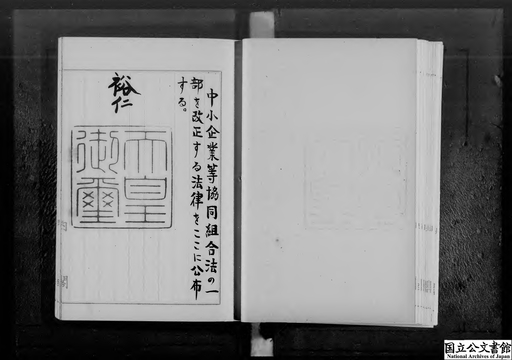 中小企業等協同組合法の一
部を改正する法律をここに公布
する。
裕仁
天皇
御璽
国立公文書館
National Archives of Japan